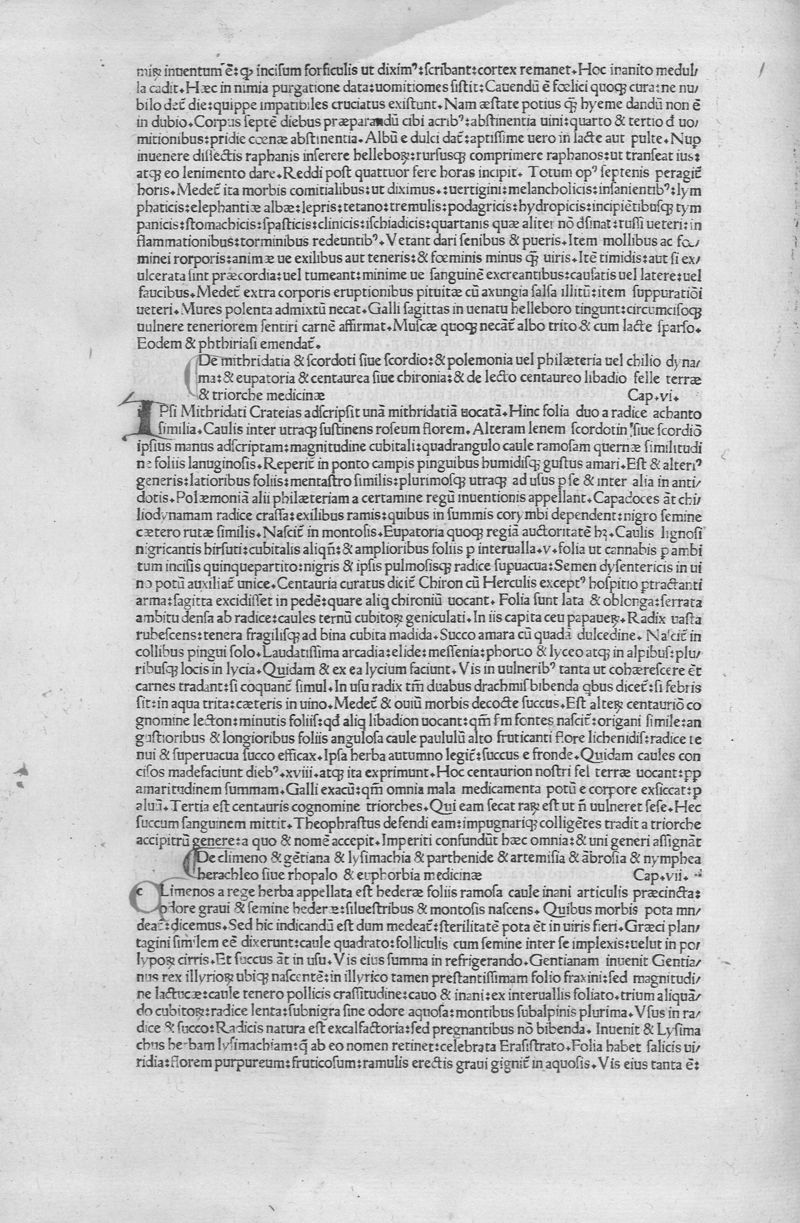 miꝝ inuentum ē: ꝙ incisum forficulis ut dixim⁹: scribant: cortex remanet. Hoc inanito medul/
la cadit. Hæc in nimia purgatione data: uomitiones sistit. Cauendū ē fœlici quoqꝫ cura: ne nu/
bilo det̄ die: quippe impatibiles cruciatus existunt. Nam æstate potius ꝗ̄ hyeme dandū non ē
in dubio. Corpus septē diebus præparandū cibi acrib⁹: abstinentia uini: quarto & tertio d uo/
mitionibus: pridie cœnæ abstinentia. Albū e dulci dat̄: aptissime uero in lacte aut pulte. Nup
inuenere dissectis raphanis inserere helleboꝝ: rursusqꝫ comprimere raphanos: ut transeat ius:
atqꝫ eo lenimento dare. Reddi post quattuor fere horas incipit. Totum op⁹ septenis peragit̄
horis. Medet̄ ita morbis comitialibus: ut diximus: uertigini: melancholicis: insanientib⁹: lym
phaticis: elephantiæ albæ: lepris: tetano: tremulis: podagricis: hydropicis: incipiētibusqꝫ tym
panicis: stomachicis: spasticis: clinicis: ischiadicis: quartanis quæ aliter nō dsinat: tussi ueteri: in
flammationibus: torminibus redeuntib⁹. Vetant dari senibus & pueris. Item mollibus ac fœ/
minei rorporis: animæ ue exilibus aut teneris: & fœminis minus ꝗ̄ uiris. Itē timidis: aut si ex/
ulcerata sint præcordia: uel tumeant: minime ue sanguinē excreantibus: causatis uel latere: uel
faucibus. Medet̄ extra corporis eruptionibus pituitæ cū axungia salsa illitū: item suppuratiōi
ueteri. Mures polenta admixtū necat. Galli sagittas in uenatu helleboro tingunt: circumcisoqꝫ
uulnere teneriorem sentiri carnē affirmat. Muscæ quoqꝫ necāt̄ albo trito & cum lacte sparso.
Eodem & phthiriasi emendat̄.
De mithridatia & scordoti siue scordio: & polemonia uel philæteria uel chilio dyna/
ma: & eupatoria & centaurea siue chironia: & de lecto centaureo libadio felle terræ
& triorche medicinæ Cap. vi.
IPsi Mithridati Crateias adscripsit unā mithridatiā uocatā. Hinc folia duo a radice achanto
similia. Caulis inter utraqꝫ sustinens roseum florem. Alteram lenem scordotin siue scordiō
ipsius manus adscriptam: magnitudine cubitali: quadrangulo caule ramosam quernæ similitudi
ne foliis lanuginosis. Reperit̄ in ponto campis pinguibus humidisqꝫ gustus amari. Est & alteri⁹
generis: latioribus foliis: mentastro similis: plurimosqꝫ utraqꝫ ad usus p se & inter alia in anti/
dotis. Polæmoniā alii philæteriam a certamine regū inuentionis appellant. Capadoces āt chi/
liodynamam radice crassa: exilibus ramis: quibus in summis corymbi dependent: nigro semine
cætero rutæ similis. Nascit̄ in montosis. Eupatoria quoqꝫ regiā auctoritatē hꝫ. Caulis lignosi
nigricantis hirsuti: cubitalis aliqn̄: & amplioribus foliis p interualla .v. folia ut cannabis p ambi
tum incisis quinquepartito: nigris & ipsis pulmosisqꝫ radice supuacua: Semen dysentericis in ui
no potū auxiliat̄ unice. Centauria curatus dicit̄ Chiron cū Herculis except⁹ hospitio ptractanti
arma: sagitta excidisset in pedē: quare aliq chironiū uocant. Folia sunt lata & oblonga: serrata
ambitu densa ab radice: caules ternū cubitoꝝ geniculati. In iis capita ceu papaueꝝ. Radix uasta
rubescens: tenera fragilisqꝫ ad bina cubita madida. Succo amara cū quadā dulcedine. Nascit̄ in
collibus pingui solo. Laudatissima arcadia: elide: messenia: pholoo & lyceo atqꝫ in alpibus: plu/
ribusqꝫ locis in lycia. Quidam & ex ea lycium faciunt. Vis in uulnerib⁹ tanta ut cohærescere ēt
carnes tradant: si coquant̄ simul. In usu radix tm̄ duabus drachmis bibenda qbus dicet̄: si febris
sit: in aqua trita: cæteris in uino. Medet̄ & ouiū morbis decocte succus. Est alteꝝ centauriō co
gnomine lecton: minutis foliis: qd̄ aliq libadion uocant: qm̄ fm fontes nascit̄: origani simile: an
gustioribus & longioribus foliis angulosa caule paululū alto fruticanti flore lichenidis: radice te
nui & superuacua succo efficax. Ipsa herba autumno legit̄: succus e fronde. Quidam caules con
cisos madefaciunt dieb⁹ .xviii. atqꝫ ita exprimunt. Hoc centaurion nostri fel terræ uocant: pp
amaritudinem summam. Galli exacū: qm̄ omnia mala medicamenta potū e corpore exsiccat: p
aluū. Tertia est centauris cognomine triorches. Qui eam secat raꝝ est ut n̄ uulneret sese. Hec
succum sanguinem mittit. Theophrastus defendi eam: impugnariqꝫ colligētes tradit a triorche
accipitrū genere: a quo & nomē accepit. Imperiti confundūt hæc omnia: & uni generi assignāt
De climeno & gētiana & lysimachia & parthenide & artemisia & ābrosia & nymphea
herachleo siue rhopalo & euphorbia medicinæ Cap. vii.
CLimenos a rege herba appellata est hederæ foliis ramosa caule inani articulis præcincta:
odore graui & semine hederæ: siluestribus & montosis nascens. Quibus morbis pota mn/
deat̄: dicemus. Sed hic indicandū est dum medeat̄: sterilitatē pota ēt in uiris fieri. Græci plan/
tagini similem eē dixerunt: caule quadrato: folliculis cum semine inter se implexis: uelut in po/
lypoꝝ cirris. Et succus āt in usu. Vis eius summa in refrigerando. Gentianam inuenit Gentia/
nus rex illyrioꝝ ubiqꝫ nascentē: in illyrico tamen prestantissimam folio fraxini: sed magnitudi/
ne lactucæ: caule tenero pollicis crassitudine: cauo & inani: ex interuallis foliato. trium aliquā/
do cubitoꝝ: radice lenta: subnigra sine odore aquosa: montibus subalpinis plurima. Vsus in ra/
dice & succo: Radicis natura est excalfactoria: sed pregnantibus nō bibenda. Inuenit & Lysima
chus herbam lysimachiam: ꝗ̄ ab eo nomen retinet: celebrata Erasistrato. Folia habet salicis ui/
ridia: florem purpureum: fruticosum: ramulis erectis graui gignit̄ in aquosis. Vis eius tanta ē: